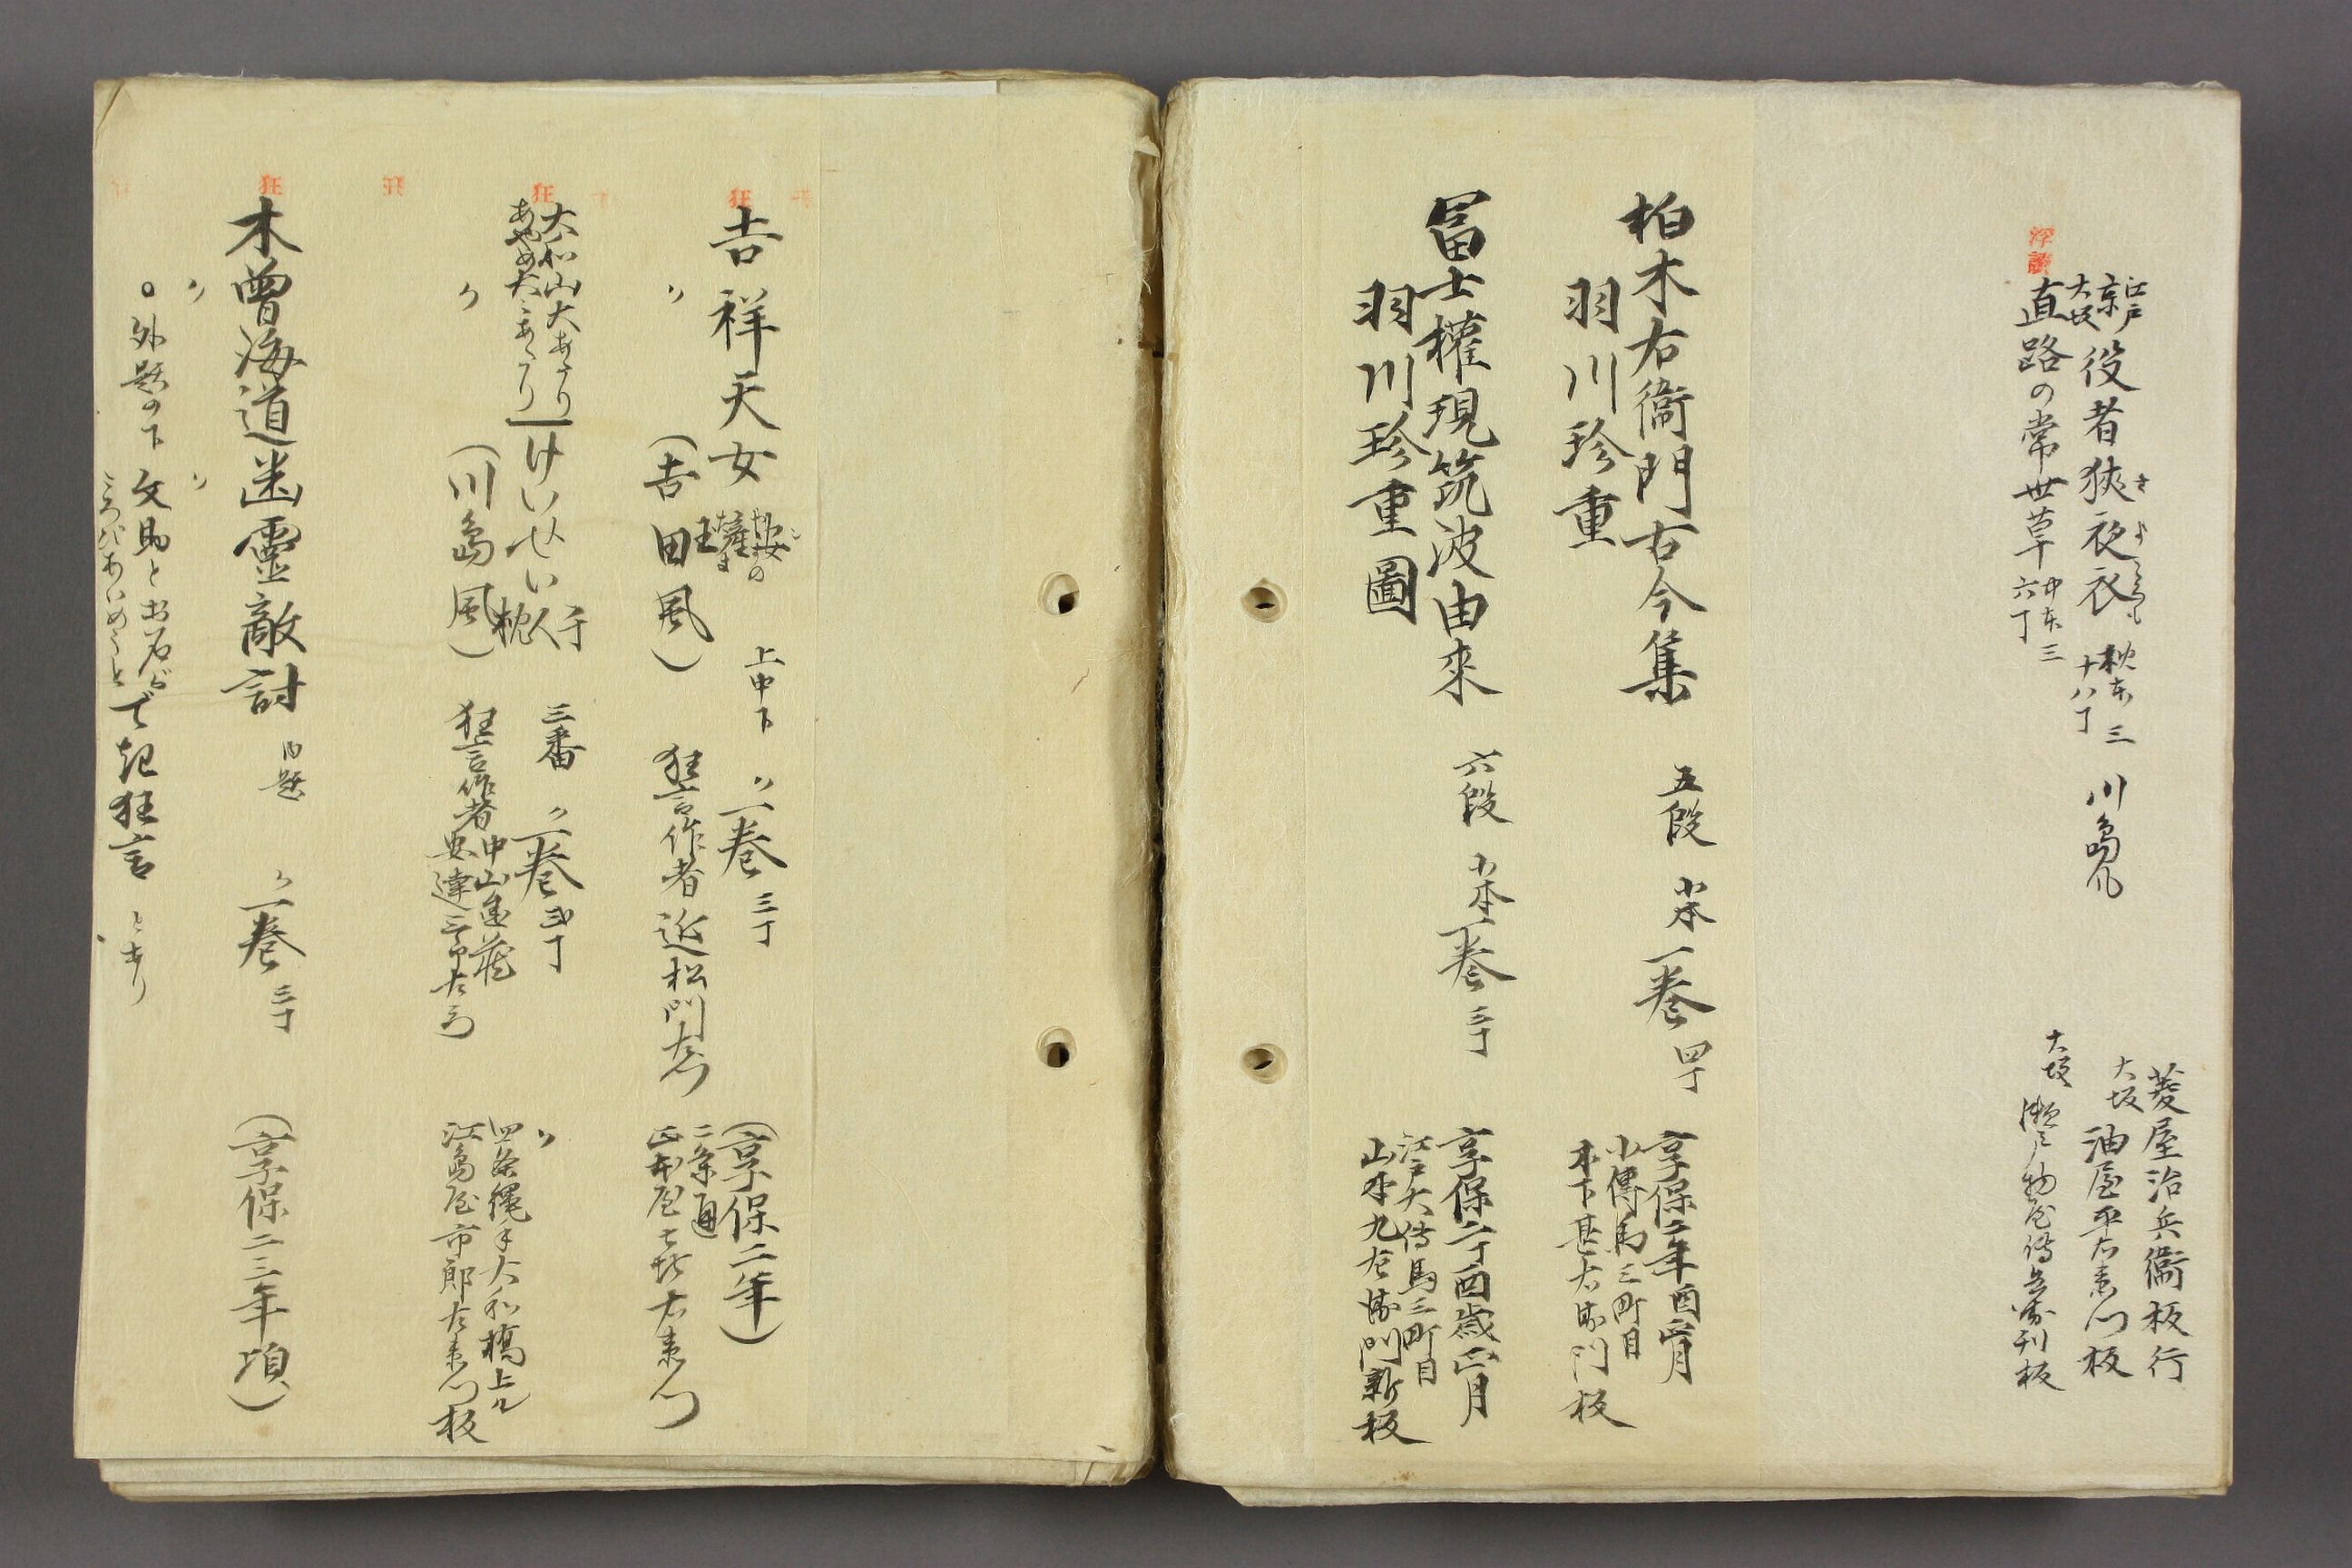 江戸
京
大坂
役者狭夜衣 枕本三 川島風
さよころも
十八丁
菱屋治兵衛板行
大坂 油屋平右衛門板
浮
直路の常世草 中本三
六丁
大坂 瀬戸物屋傳兵衛刊板
柏木右衛門古今集 五段 半本一巻 四丁
享保二年酉正月
羽川珍重
小傳馬三町目
木下甚右衛門板
冨士權現筑波由来 六段 半本一巻 三丁
享保二丁酉歳正月
羽川珍重圖
江戸大傳馬三町目
山本九左衛門新板
狂
吉祥天女
安の
上中下 〃一巻 三丁
(享保二年)
〃 (吉田風)
狂言作者 近松門左衛門
二条通
正本屋喜右衛門
狂
大和山大あたり
あやめ大あたり
けいせい
三番 〃一巻
〃 (川島風)
狂言作者
四条縄手大和橋上ル
江島屋市郎左衛門板
狂
狂
木曽海道幽靈敵討 内題 〃一巻 三丁
(享保二三年頃)
〃
○外題の下 文助とお石が
で記狂言 とあり